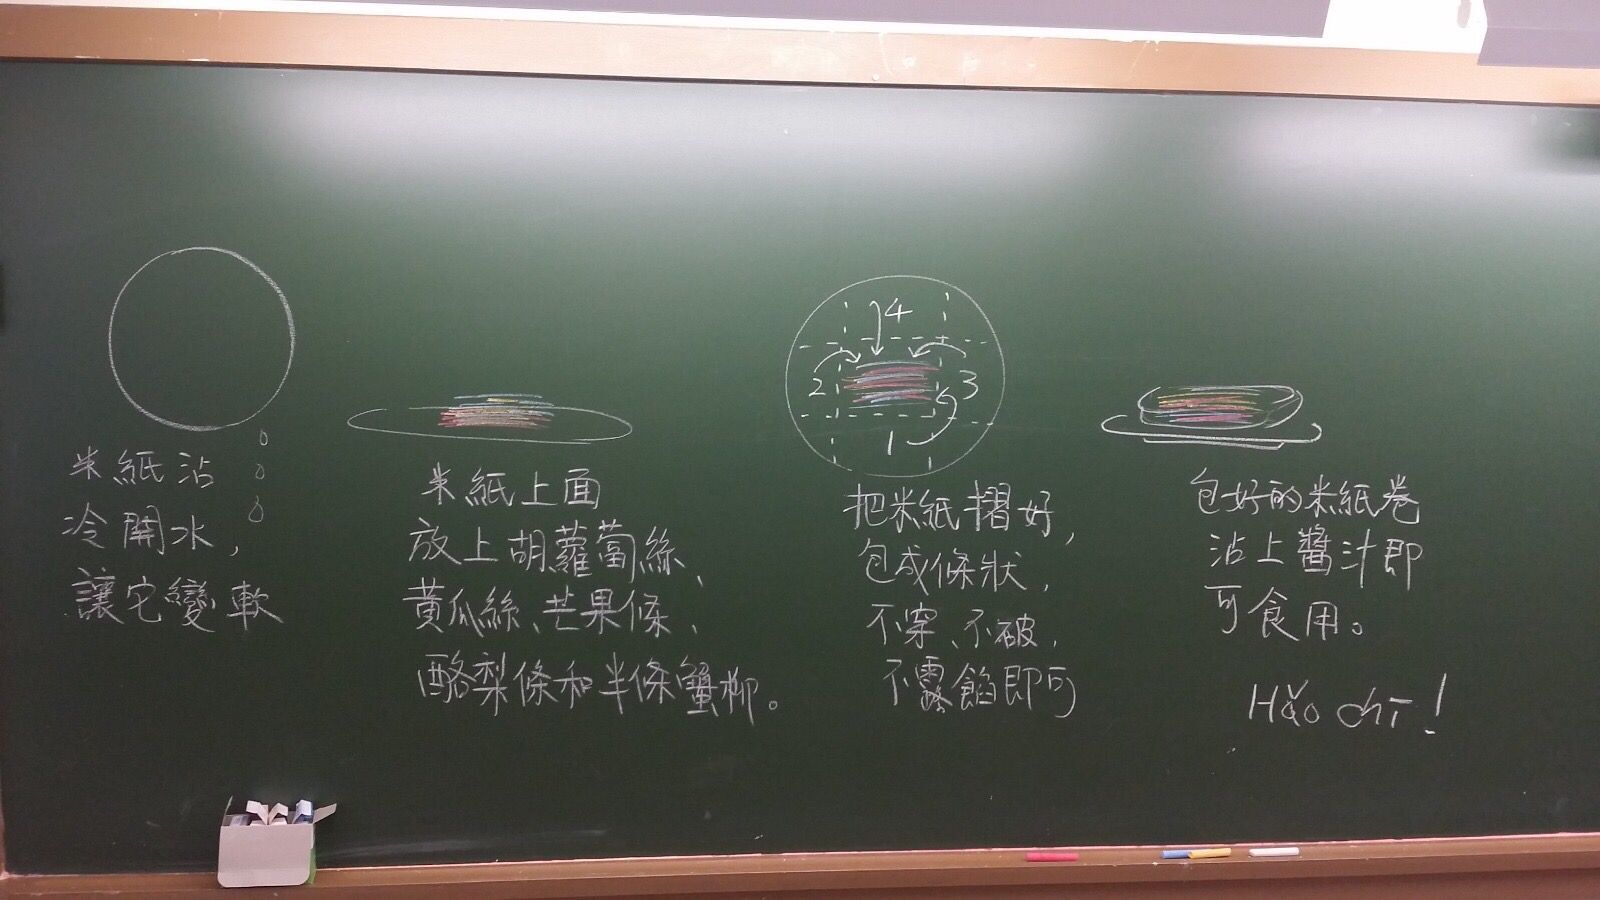 米紙沾
冷開水,
讓它變軟
米紙上面
放上胡蘿蔔絲、
黃瓜絲、芒果條、
酪梨條和半條蟹柳。
4
2
3
1
把米紙摺好,
包成條狀,
不穿、不破,
不露餡即可
包好的米紙卷
沾上醬汁即
可食用。
Hǎo chī!